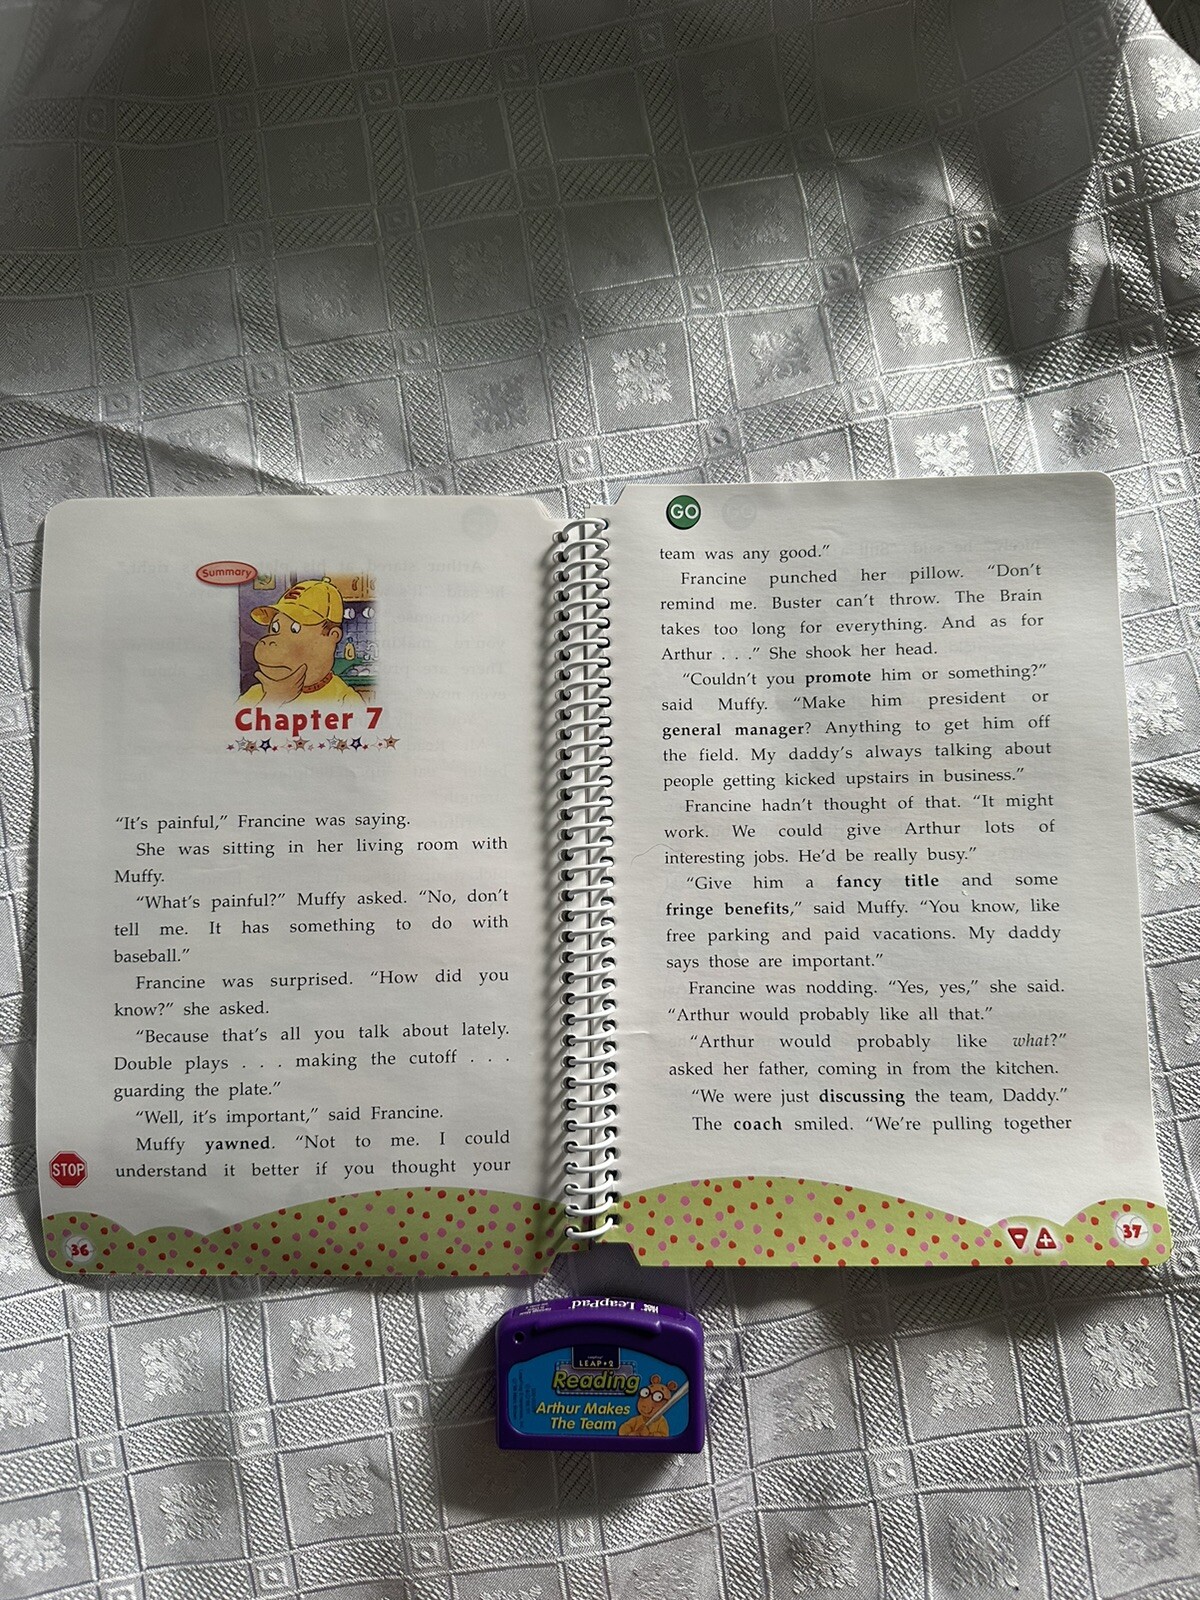 Summary
Chapter 7
“It’s painful,” Francine was saying.
She was sitting in her living room with
Muffy.
“What’s painful?” Muffy asked. “No, don’t
tell me. It has something to do with
baseball.”
Francine was surprised. “How did you
know?” she asked.
“Because that’s all you talk about lately.
Double plays . . . making the cutoff . . .
guarding the plate.”
“Well, it’s important,” said Francine.
Muffy yawned. “Not to me. I could
understand it better if you thought your
STOP
36
GO
team was any good.”
Francine punched her pillow. “Don’t
remind me. Buster can’t throw. The Brain
takes too long for everything. And as for
Arthur . . .” She shook her head.
“Couldn’t you promote him or something?”
said Muffy. “Make him president or
general manager? Anything to get him off
the field. My daddy’s always talking about
people getting kicked upstairs in business.”
Francine hadn’t thought of that. “It might
work. We could give Arthur lots of
interesting jobs. He’d be really busy.”
“Give him a fancy title and some
fringe benefits,” said Muffy. “You know, like
free parking and paid vacations. My daddy
says those are important.”
Francine was nodding. “Yes, yes,” she said.
“Arthur would probably like all that.”
“Arthur would probably like what?”
asked her father, coming in from the kitchen.
“We were just discussing the team, Daddy.”
The coach smiled. “We’re pulling together
37
LeapPad
LEAP•2
Reading
Arthur Makes
The Team